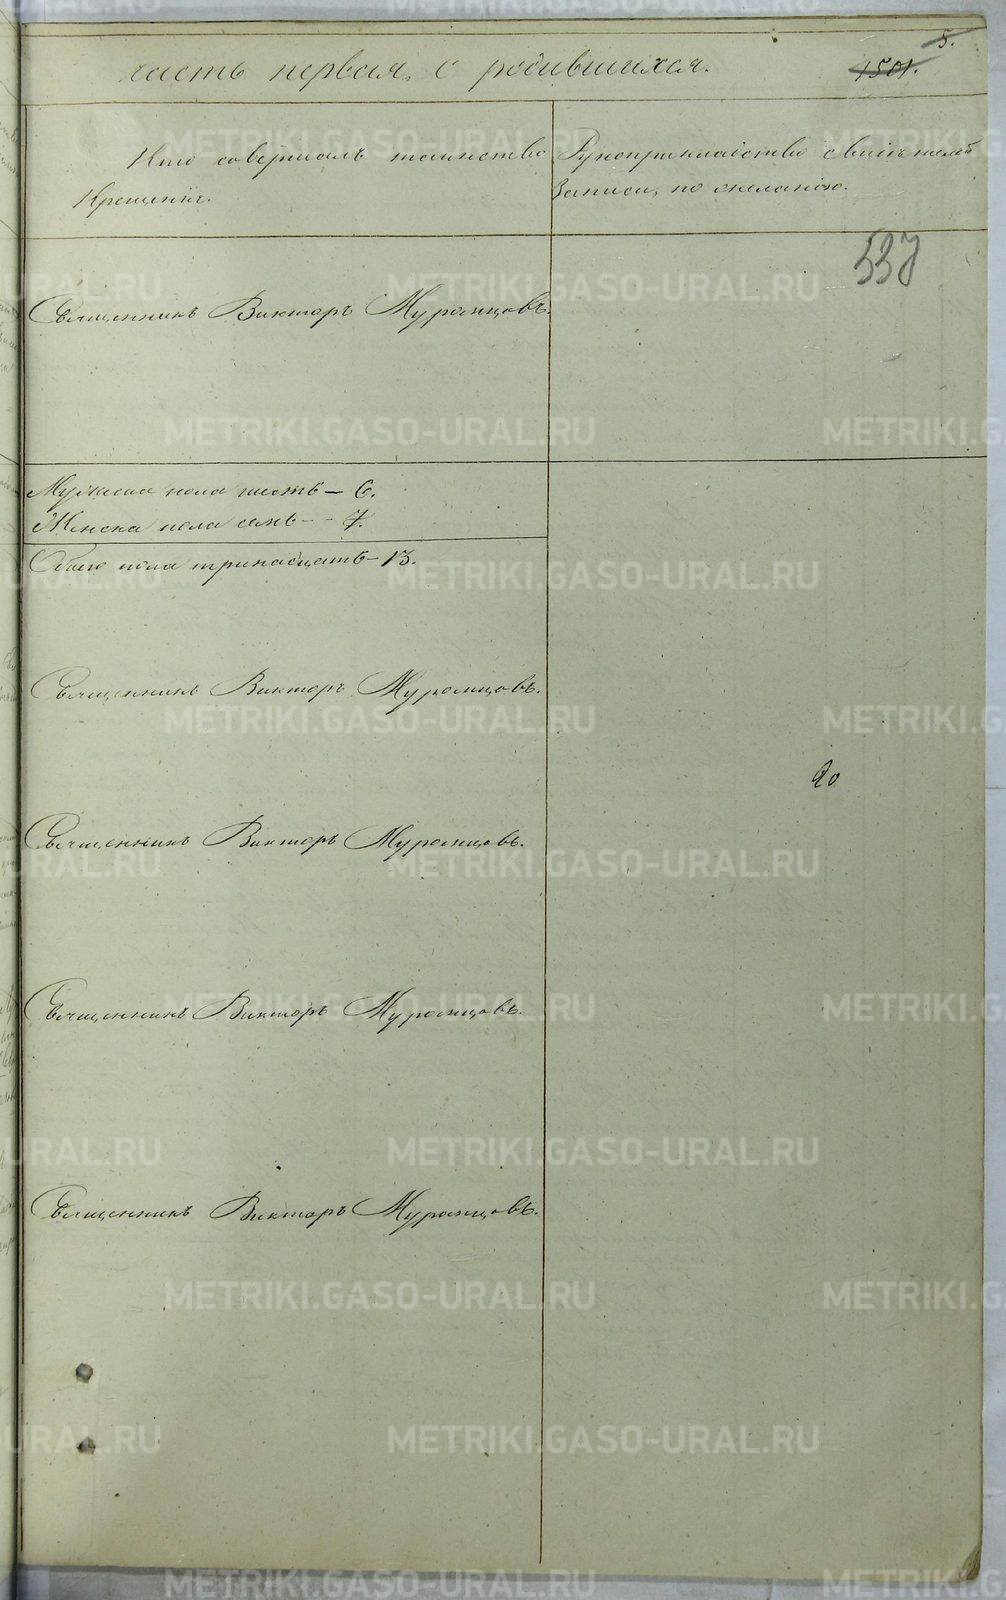 5.
часть первая, о родившихся.
1501.
Кто совершалъ таинство
Крещенія.
Рукоприкладство свидѣтелей
записи, по желанію.
537
Священникъ Викторъ Муромцовъ.
Мужеска пола шесть – 6.
Женска пола семь – – 7.
Обоего пола тринадцать – 13.
Священникъ Викторъ Муромцовъ.
20
Священникъ Викторъ Муромцовъ.
Священникъ Викторъ Муромцовъ.
Священникъ Викторъ Муромцовъ.
METRIKI.GASO-URAL.RU